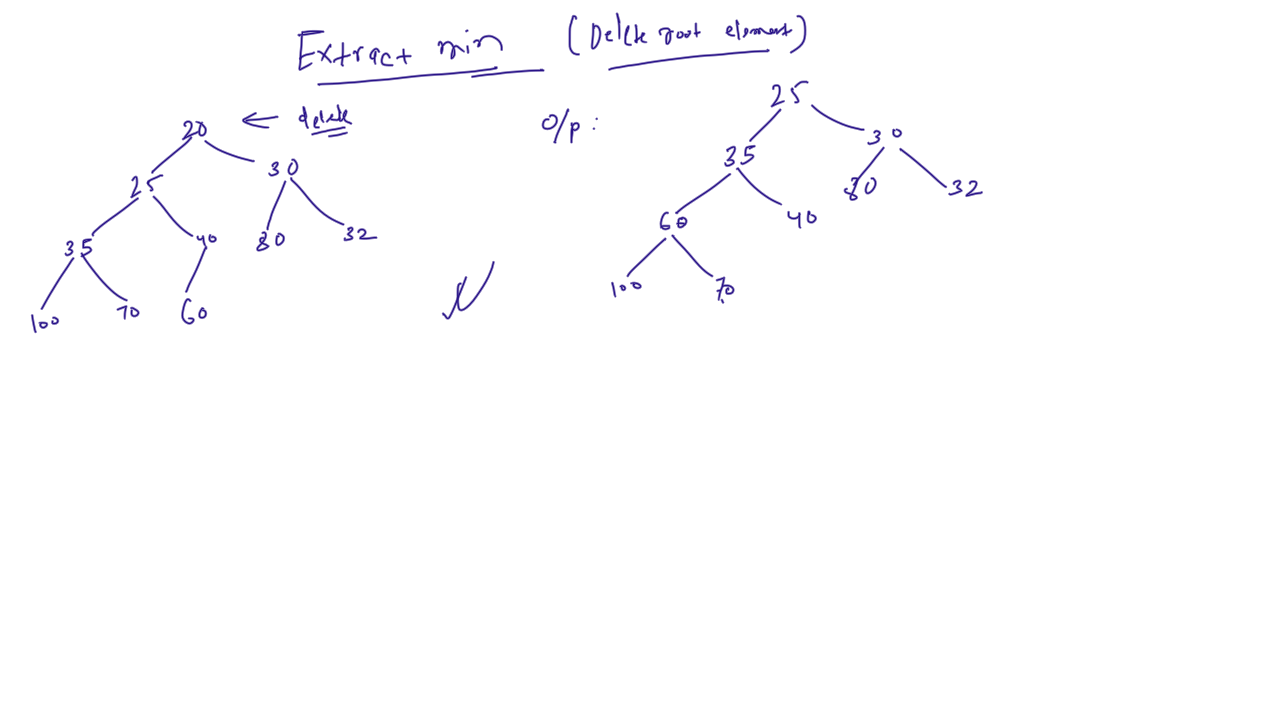 Extract min (Delete root element)
20 ← delete
25 30
35 40 80 32
100 70 60
O/p :
25
35 30
60 40 80 32
100 70